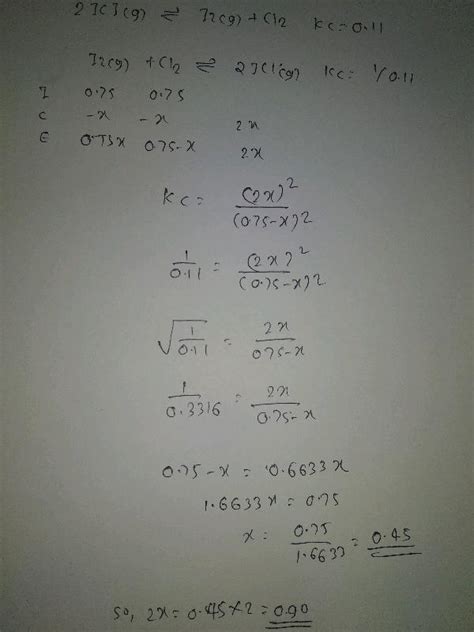 2ICl(g) ⇌ I2(g) + Cl2 Kc = 0.11
I2(g) + Cl2 ⇌ 2ICl(g) Kc = 1/0.11
I 0.75 0.75
C -x -x 2x
E 0.75-x 0.75-x 2x
Kc = (2x)² / (0.75-x)2
1/0.11 = (2x)² / (0.75-x)2
√(1/0.11) = 2x / 0.75-x
1/0.3316 = 2x / 0.75-x
0.75-x = 0.6633x
1.6633x = 0.75
x = 0.75/1.6633 = 0.45
So, 2x = 0.45×2 = 0.90